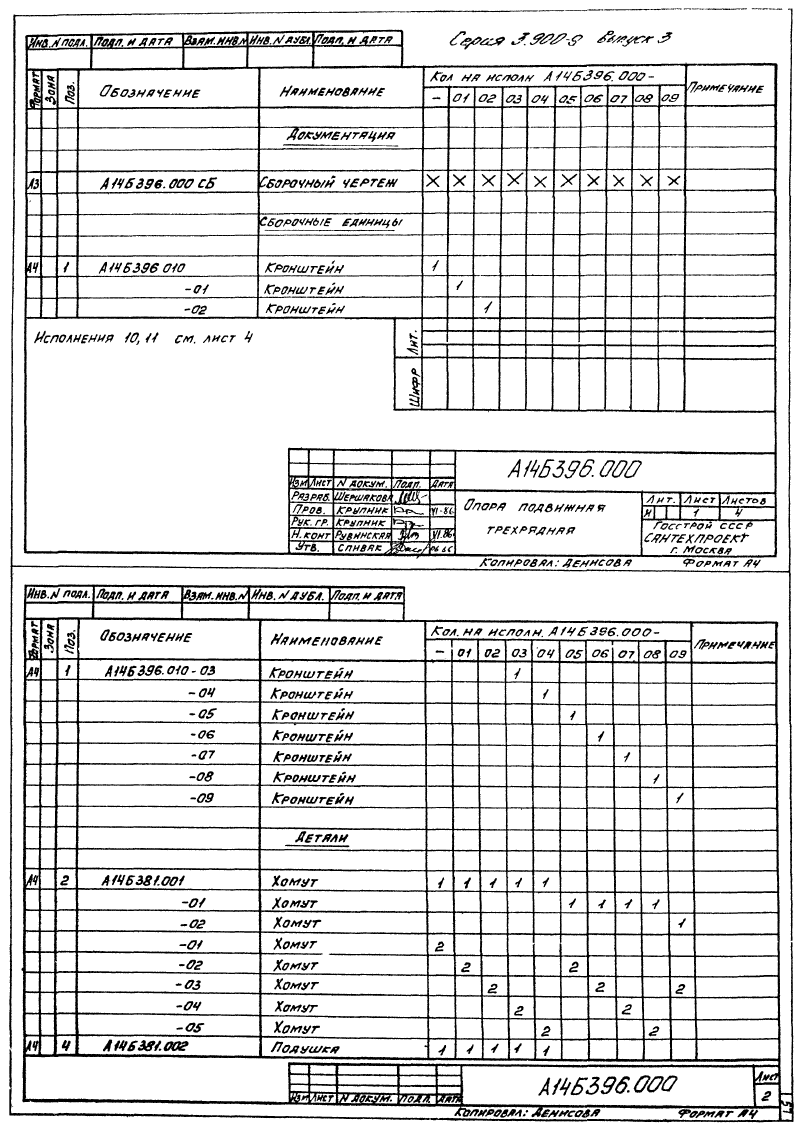 Серия 3.900-9 Выпуск 3
Инв. N подл. Подп. и дата Взам. инв. N Инв. N дубл. Подп. и дата
Формат Зона Поз. Обозначение Наименование Кол на исполн А14Б396.000- Примечание
- 01 02 03 04 05 06 07 08 09
Документация
А3 А14Б396.000 СБ Сборочный чертеж X X X X X X X X X X
Сборочные единицы
А4 1 А14Б396 010 Кронштейн 1
-01 Кронштейн 1
-02 Кронштейн 1
Исполнения 10, 11 см. лист 4
Лит.
Шифр
А14Б396.000
Изм Лист N докум. Подп. Дата
Разраб. Шершакова
Пров. Крупник VI-86
Рук. гр. Крупник
Н. конт Рубинская VI.86
Утв. Спивак
Опора подвижная
трехрядная
Лит. Лист Листов
И 1 4
Госстрой СССР
Сантехпроект
г. Москва
Копировал: Денисова Формат А4
Инв. N подл. Подп. и дата Взам. инв. N Инв. N дубл. Подп. и дата
Формат Зона Поз. Обозначение Наименование Кол. на исполн. А14Б396.000- Примечание
- 01 02 03 04 05 06 07 08 09
А4 1 А14Б396.010-03 Кронштейн 1
-04 Кронштейн 1
-05 Кронштейн 1
-06 Кронштейн 1
-07 Кронштейн 1
-08 Кронштейн 1
-09 Кронштейн 1
Детали
А4 2 А14Б381.001 Хомут 1 1 1 1 1
-01 Хомут 1 1 1 1
-02 Хомут 1
-01 Хомут 2
-02 Хомут 2 2
-03 Хомут 2 2 2
-04 Хомут 2 2
-05 Хомут 2 2
А4 4 А14Б381.002 Подушка 1 1 1 1 1
Изм Лист N докум. Подп. Дата
А14Б396.000
Лист
2
Копировал: Денисова Формат А4